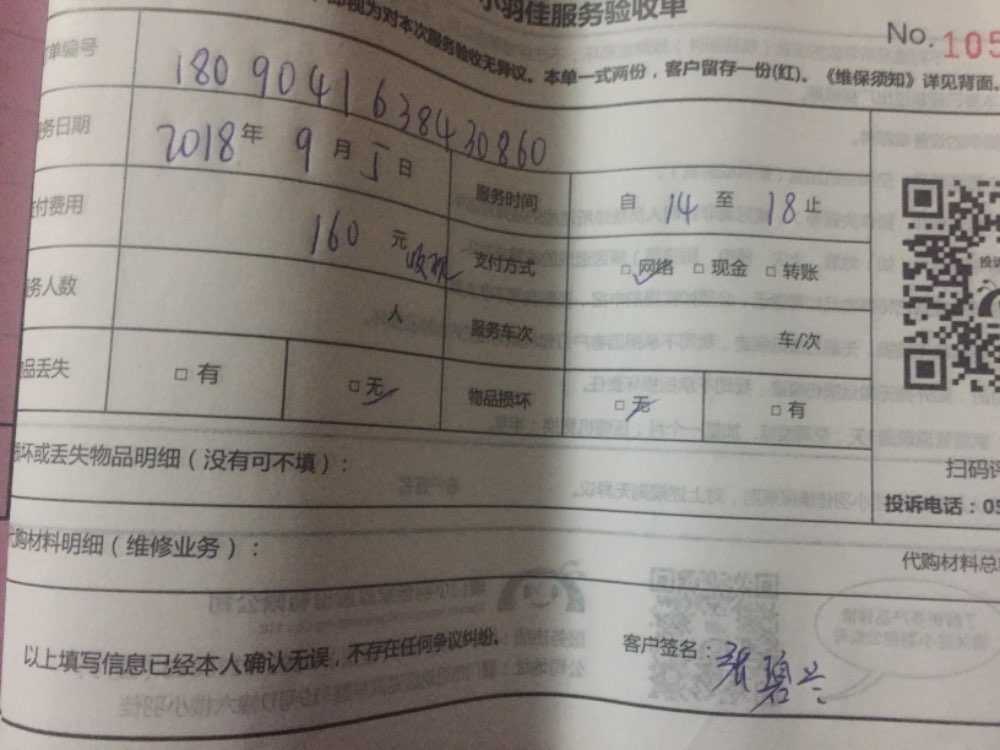 小羽佳服务验收单
即视为对本次服务验收无异议。本单一式两份，客户留存一份(红)。《维保须知》详见背面。
No. 105
单编号 180904163843 0860
务日期 2018年 9月 5日 服务时间 自 14 至 18 止
付费用 160 元 支付方式 □网络 □现金 □转账
务人数 人 服务车次 车/次
品丢失 □有 □无 物品损坏 □无 □有
损坏或丢失物品明细（没有可不填）：
扫码评
投诉电话：05
代购材料明细（维修业务）：
代购材料总
以上填写信息已经本人确认无误，不存在任何争议纠纷。
客户签名：张碧兰